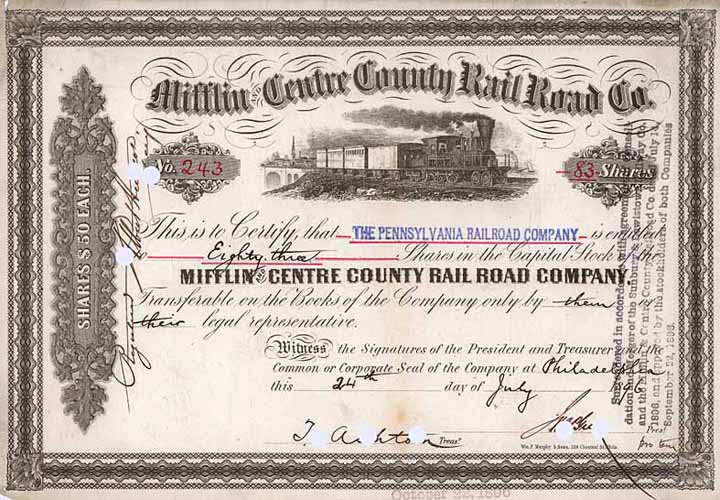 Mifflin AND Centre County Rail Road Co.
No. 243
83 Shares
SHARES $50 EACH.
This is to Certify, that THE PENNSYLVANIA RAILROAD COMPANY is entitled
to Eighty three Shares in the Capital Stock of the
MIFFLIN AND CENTRE COUNTY RAIL ROAD COMPANY
Transferable on the Books of the Company only by them or
their legal representative.
Witness the Signatures of the President and Treasurer and the
Common or Corporate Seal of the Company at Philadelphia
this 24th day of July
T. Ashton Treasr.
Prest.
pro tem
Wm. F. Murphy & Sons, 509 Chestnut St. Phila.
Surrendered in accordance with agreement of consoli-
dation and merger of the Sunbury & Lewistown Railway Co.
and the Mifflin & Centre County Railroad Co. dated July 14,
1896, and approved by the stockholders of both Companies
September 22, 1896.
October 22, 1896